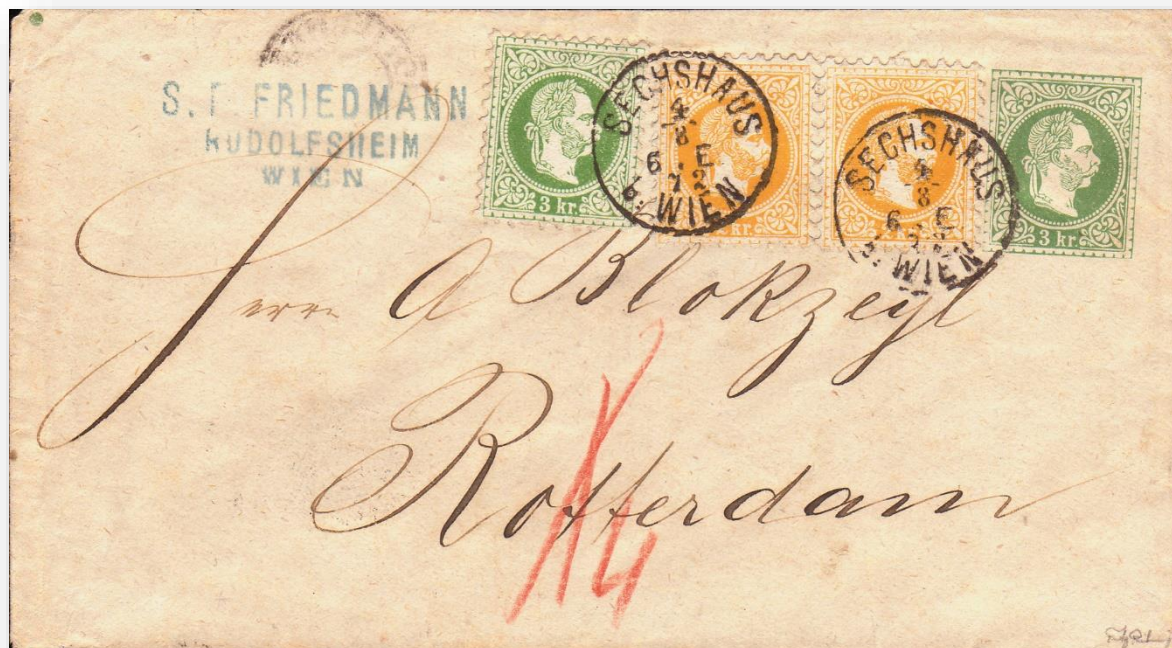 S. F. FRIEDMANN
RUDOLFSHEIM
WIEN
3 kr.
SECHSHAUS
4
8
6. E
72
WIEN
kr.
SECHSHAUS
4
8
6. E
WIEN
3 kr.
Herrn A Blokzeyl
Rotterdam